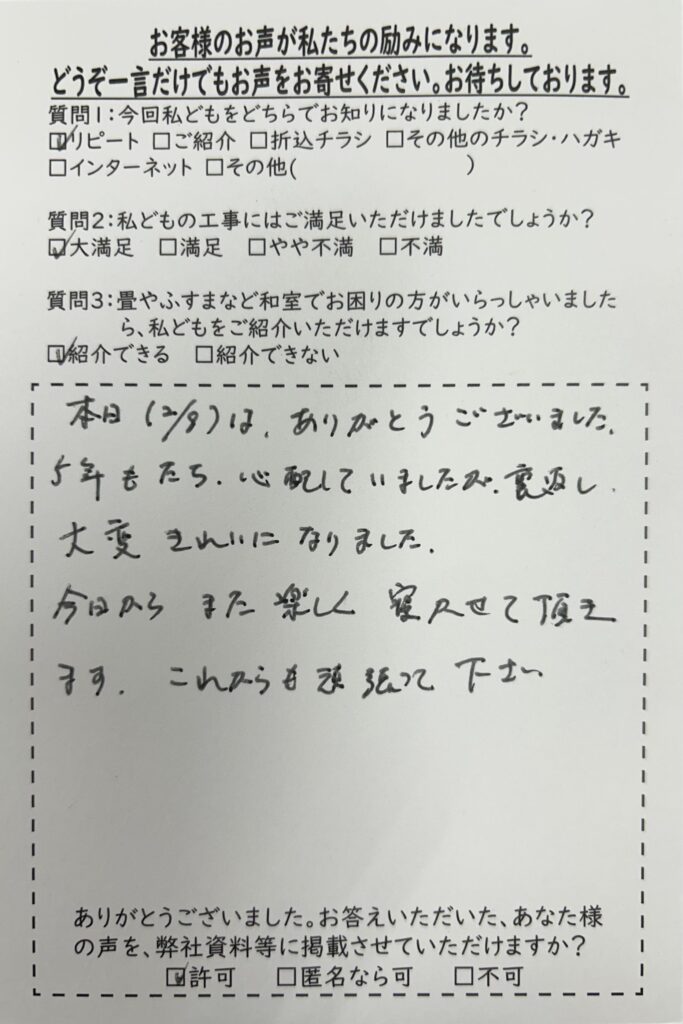 お客様のお声が私たちの励みになります。
どうぞ一言だけでもお声をお寄せください。お待ちしております。
質問1：今回私どもをどちらでお知りになりましたか？
☑リピート □ご紹介 □折込チラシ □その他のチラシ・ハガキ
□インターネット □その他(　　　　　　)
質問2：私どもの工事にはご満足いただけましたでしょうか？
☑大満足 □満足 □やや不満 □不満
質問3：畳やふすまなど和室でお困りの方がいらっしゃいました
ら、私どもをご紹介いただけますでしょうか？
☑紹介できる □紹介できない
本日(12/9)は、ありがとうございました。
5年もたち、心配していましたが、裏返し、
大変きれいになりました。
今日からまた楽しく寝させて頂き
ます。これからも頑張って下さい
ありがとうございました。お答えいただいた、あなた様
の声を、弊社資料等に掲載させていただけますか？
☑許可 □匿名なら可 □不可